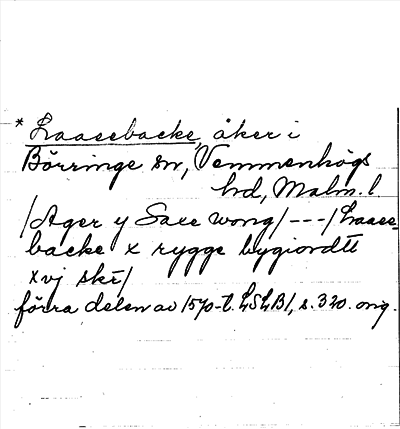 * Laasebacke, åker i
Börringe sn, Vemmenhögs
hd, Malm. l
/Ager y Saxe wong/---/Laase-
backe x rygge bygiordtt
xvj skr/
förra delen av 1570-t. LSLB1, s. 320. orig.